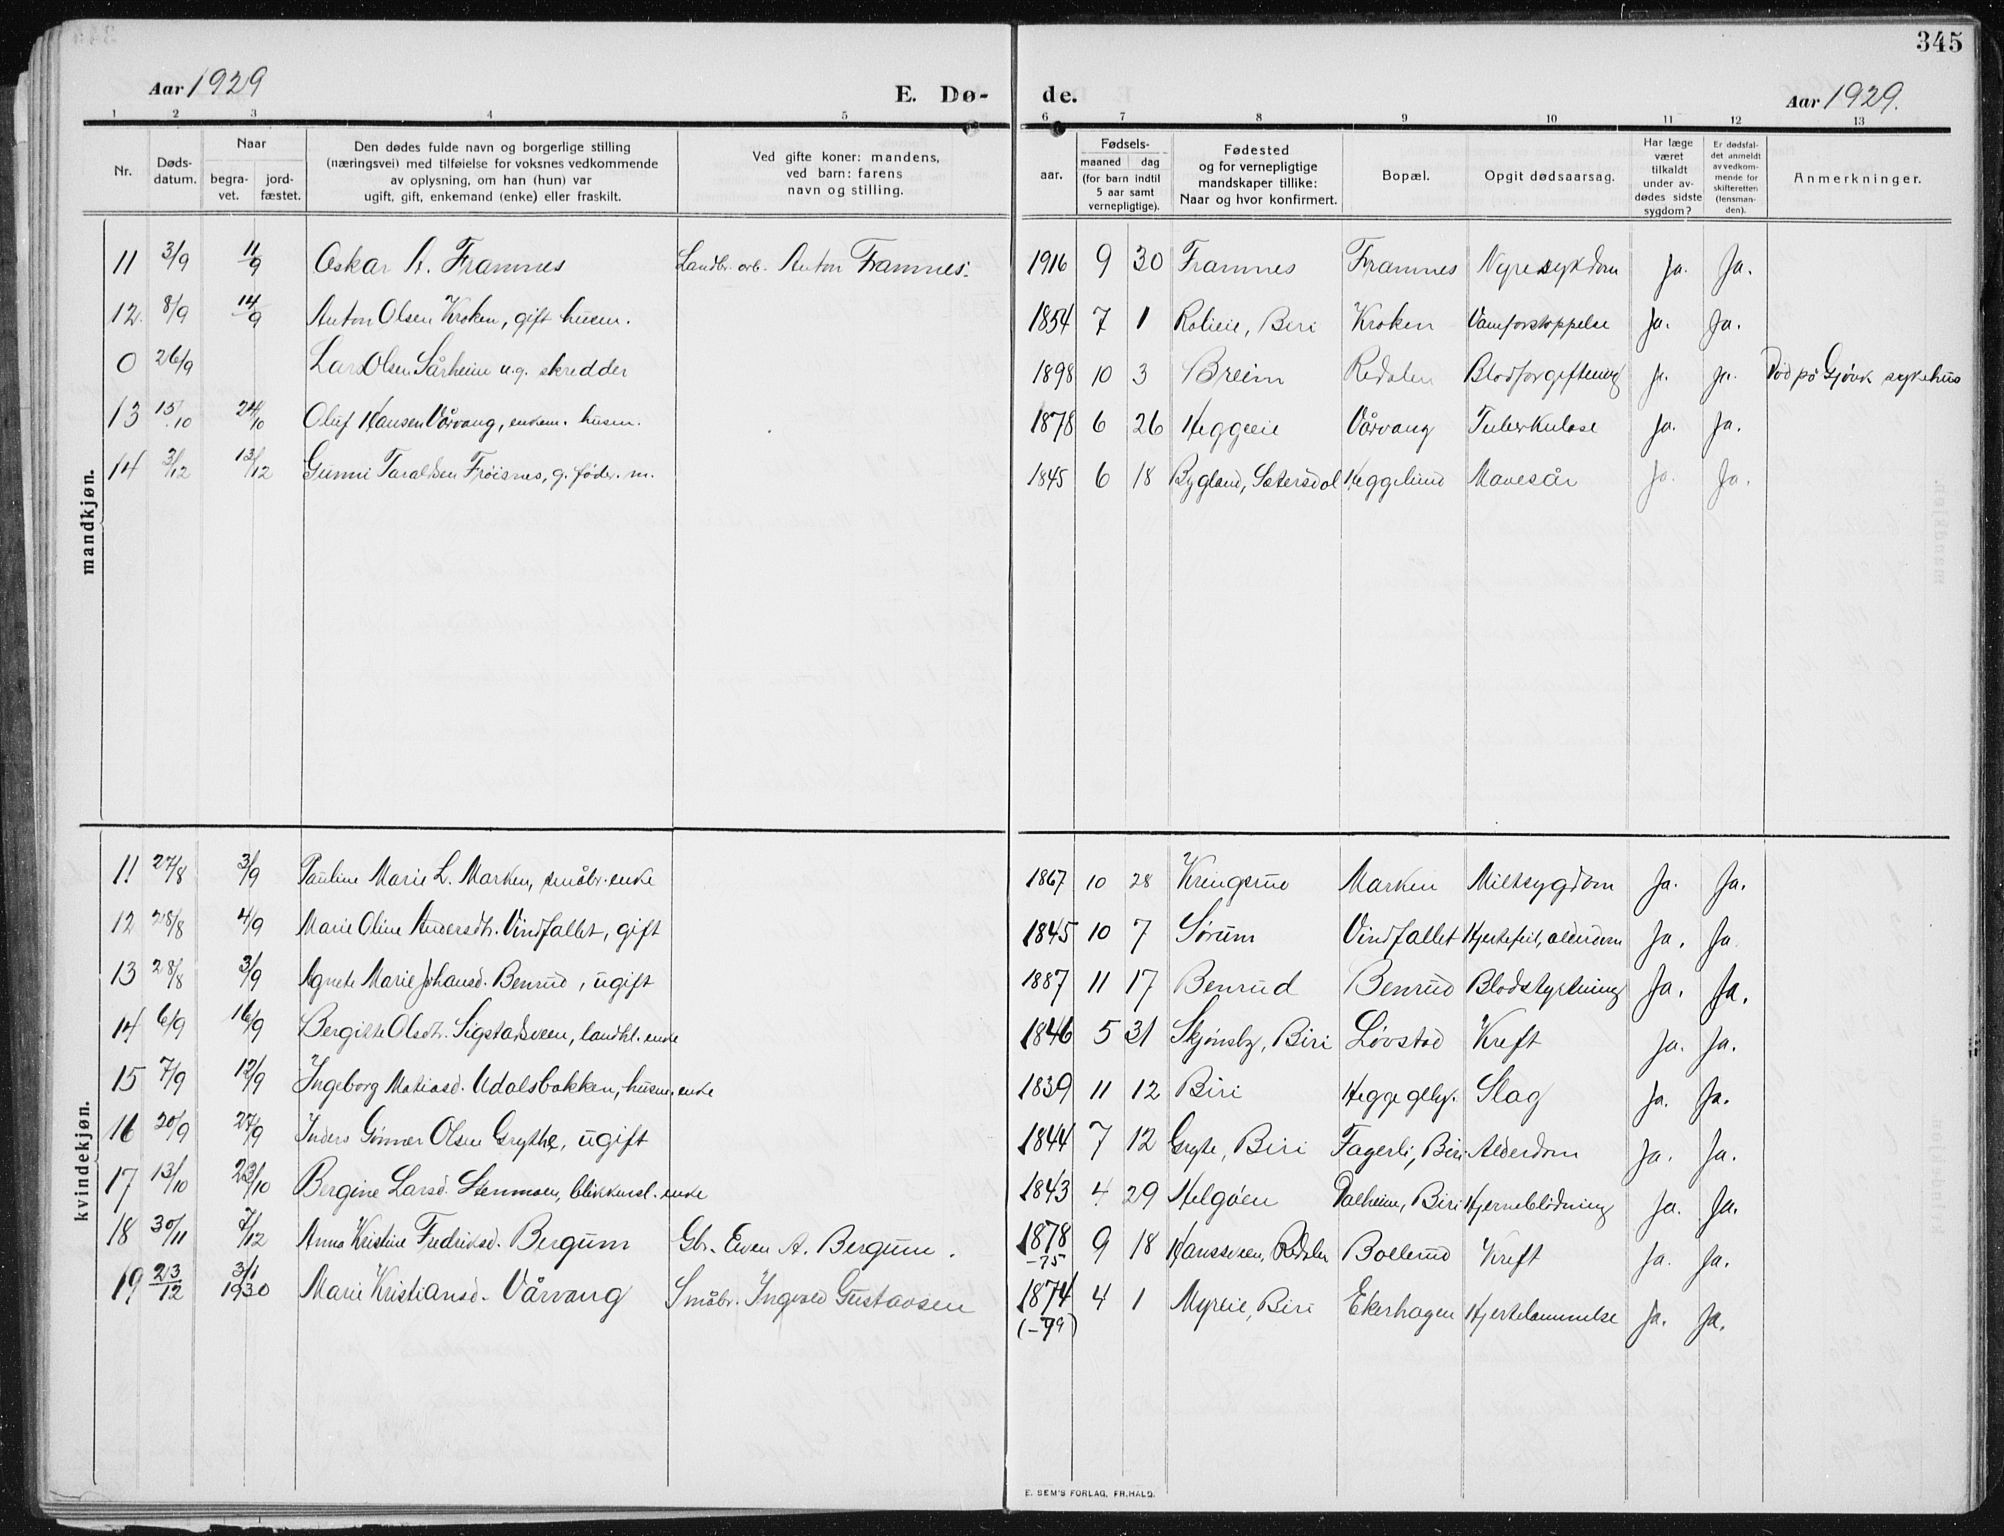 345
Aar 1929 E. Dø- de. Aar 1929.
1 2 3 4 5 6 7 8 9 10 11 12 13
Nr. Døds-datum. Naar begra-vet. jord-fæstet. Den dødes fulde navn og borgerlige stilling (næringsvei) med tilføielse for voksnes vedkommende av oplysning, om han (hun) var ugift, gift, enkemand (enke) eller fraskilt. Ved gifte koner: mandens, ved barn: farens navn og stilling. Fødsels- aar. maaned dag (for barn indtil 5 aar samt vernepligtige). Fødested og for vernepligtige mandskaper tillike: Naar og hvor konfirmert. Bopæl. Opgit dødsaarsag. Har læge været tilkaldt under av-dødes sidste sygdom? Er dødsfal-det anmeldt av vedkom-mende for skifteretten (lensman-den). Anmerkninger.
mandkjøn.
11 3/9 11/9 Oskar A. Framnes Landbr. arb. Anton Framnes. 1916 9 30 Framnes Framnes Nyresykdom Ja. Ja.
12. 8/9 14/9 Anton Olsen Kroken, gift husm. 1854 7 1 Rolieie, Biri Kroken Vamforstoppelse Ja. Ja.
0 26/9 Lars Olsen Sårheim u.g. skredder 1898 10 3 Breim Redalen Blodforgiftning ja. ja. Død på Gjøvik sykehus
13 15/10 24/10 Oluf Hansen Vårvang, enkem. husm. 1878 6 26 Heggeeie Vårvang Tuberkulose Ja. Ja.
14 3/12 13/12 Gunni Taraldsen Frøisnes, g. føder. m. 1845 6 18 Bygland, Sætersdal Heggelund Mavesår Ja. Ja.
kvindekjøn.
11 27/8 3/9 Pauline Marie L. Marken, småbr. enke 1867 10 28 Kringsrud Marken Miltsygdom Ja. Ja.
12 28/8 4/9 Marie Oline Andersdtr. Vindfallet, gift 1845 10 7 Sørum Vindfallet Hjertefeil, alderdom Ja. Ja
13 28/8 3/9 Agnete Marie Johansd. Benrud, ugift 1887 11 17 Benrud Benrud Blodstyrtning Ja. Ja.
14 6/9 16/9 Bergitte Olsdtr. Sigstadsveen, landhl. enke 1846 5 31 Skjønsby, Biri Løvstad Kreft Ja. Ja.
15 7/9 12/9 Ingeborg Matiasd. Udalsbakken, husm. enke 1839 11 12 Biri Hegge Slag Ja. Ja.
16 20/9 27/9 Gunnor Olsen Grythe, ugift 1844 7 12 Gryte, Biri Fagerli, Biri Alderdom Ja. Ja.
17 13/10 23/10 Bergine Larsd. Stenmoen, blikkensl. enke 1843 4 29 Helgøen Dalheim, Biri Hjerneblødning Ja. Ja.
18 30/11 7/12 Anna Kristine Fredriksd. Bergum Gbr. Even A. Bergum. 1878 -75 9 18 Hansveen, Redalen Bollerud Kreft Ja. Ja.
19 23/12 3/1 1930 Marie Kristiansd. Vårvang Småbr. Ingvald Gustavsen 1874 4 1 Myreie, Biri Ekerhagen Hjertelammelse Ja. Ja.
E. SEM'S FORLAG, FR.HALD.